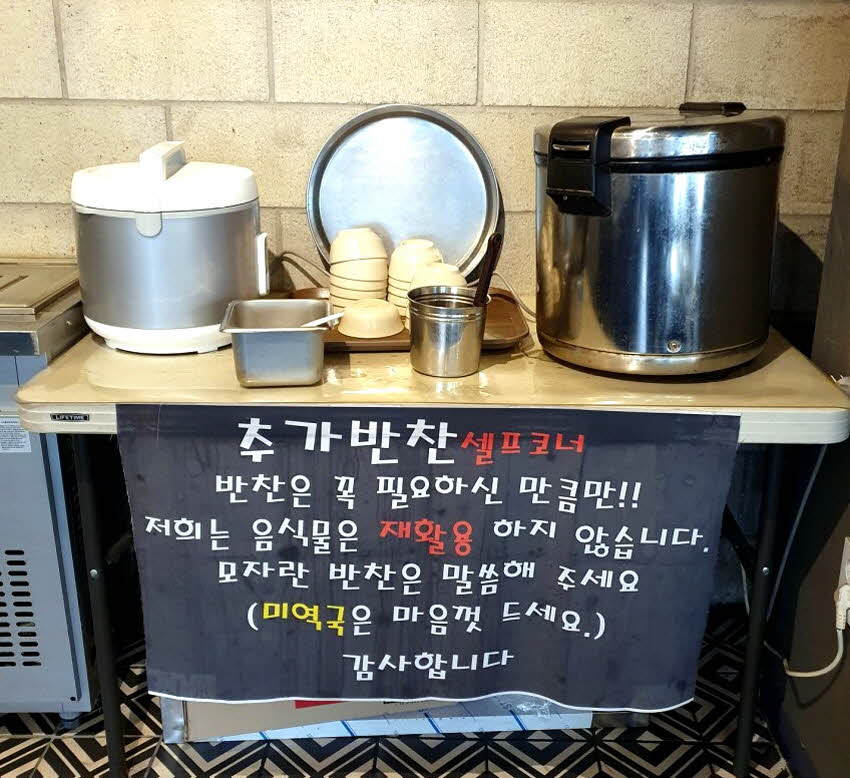 LIFETIME
추가반찬 셀프코너
반찬은 꼭 필요하신 만큼만!!
저희는 음식물은 재활용 하지 않습니다.
모자란 반찬은 말씀해 주세요
(미역국은 마음껏 드세요.)
감사합니다